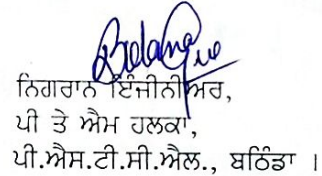 ਨਿਗਰਾਨ ਇੰਜੀਨੀਅਰ,
ਪੀ ਤੇ ਐਮ ਹਲਕਾ,
ਪੀ.ਐਸ.ਟੀ.ਸੀ.ਐਲ., ਬਠਿੰਡਾ ।